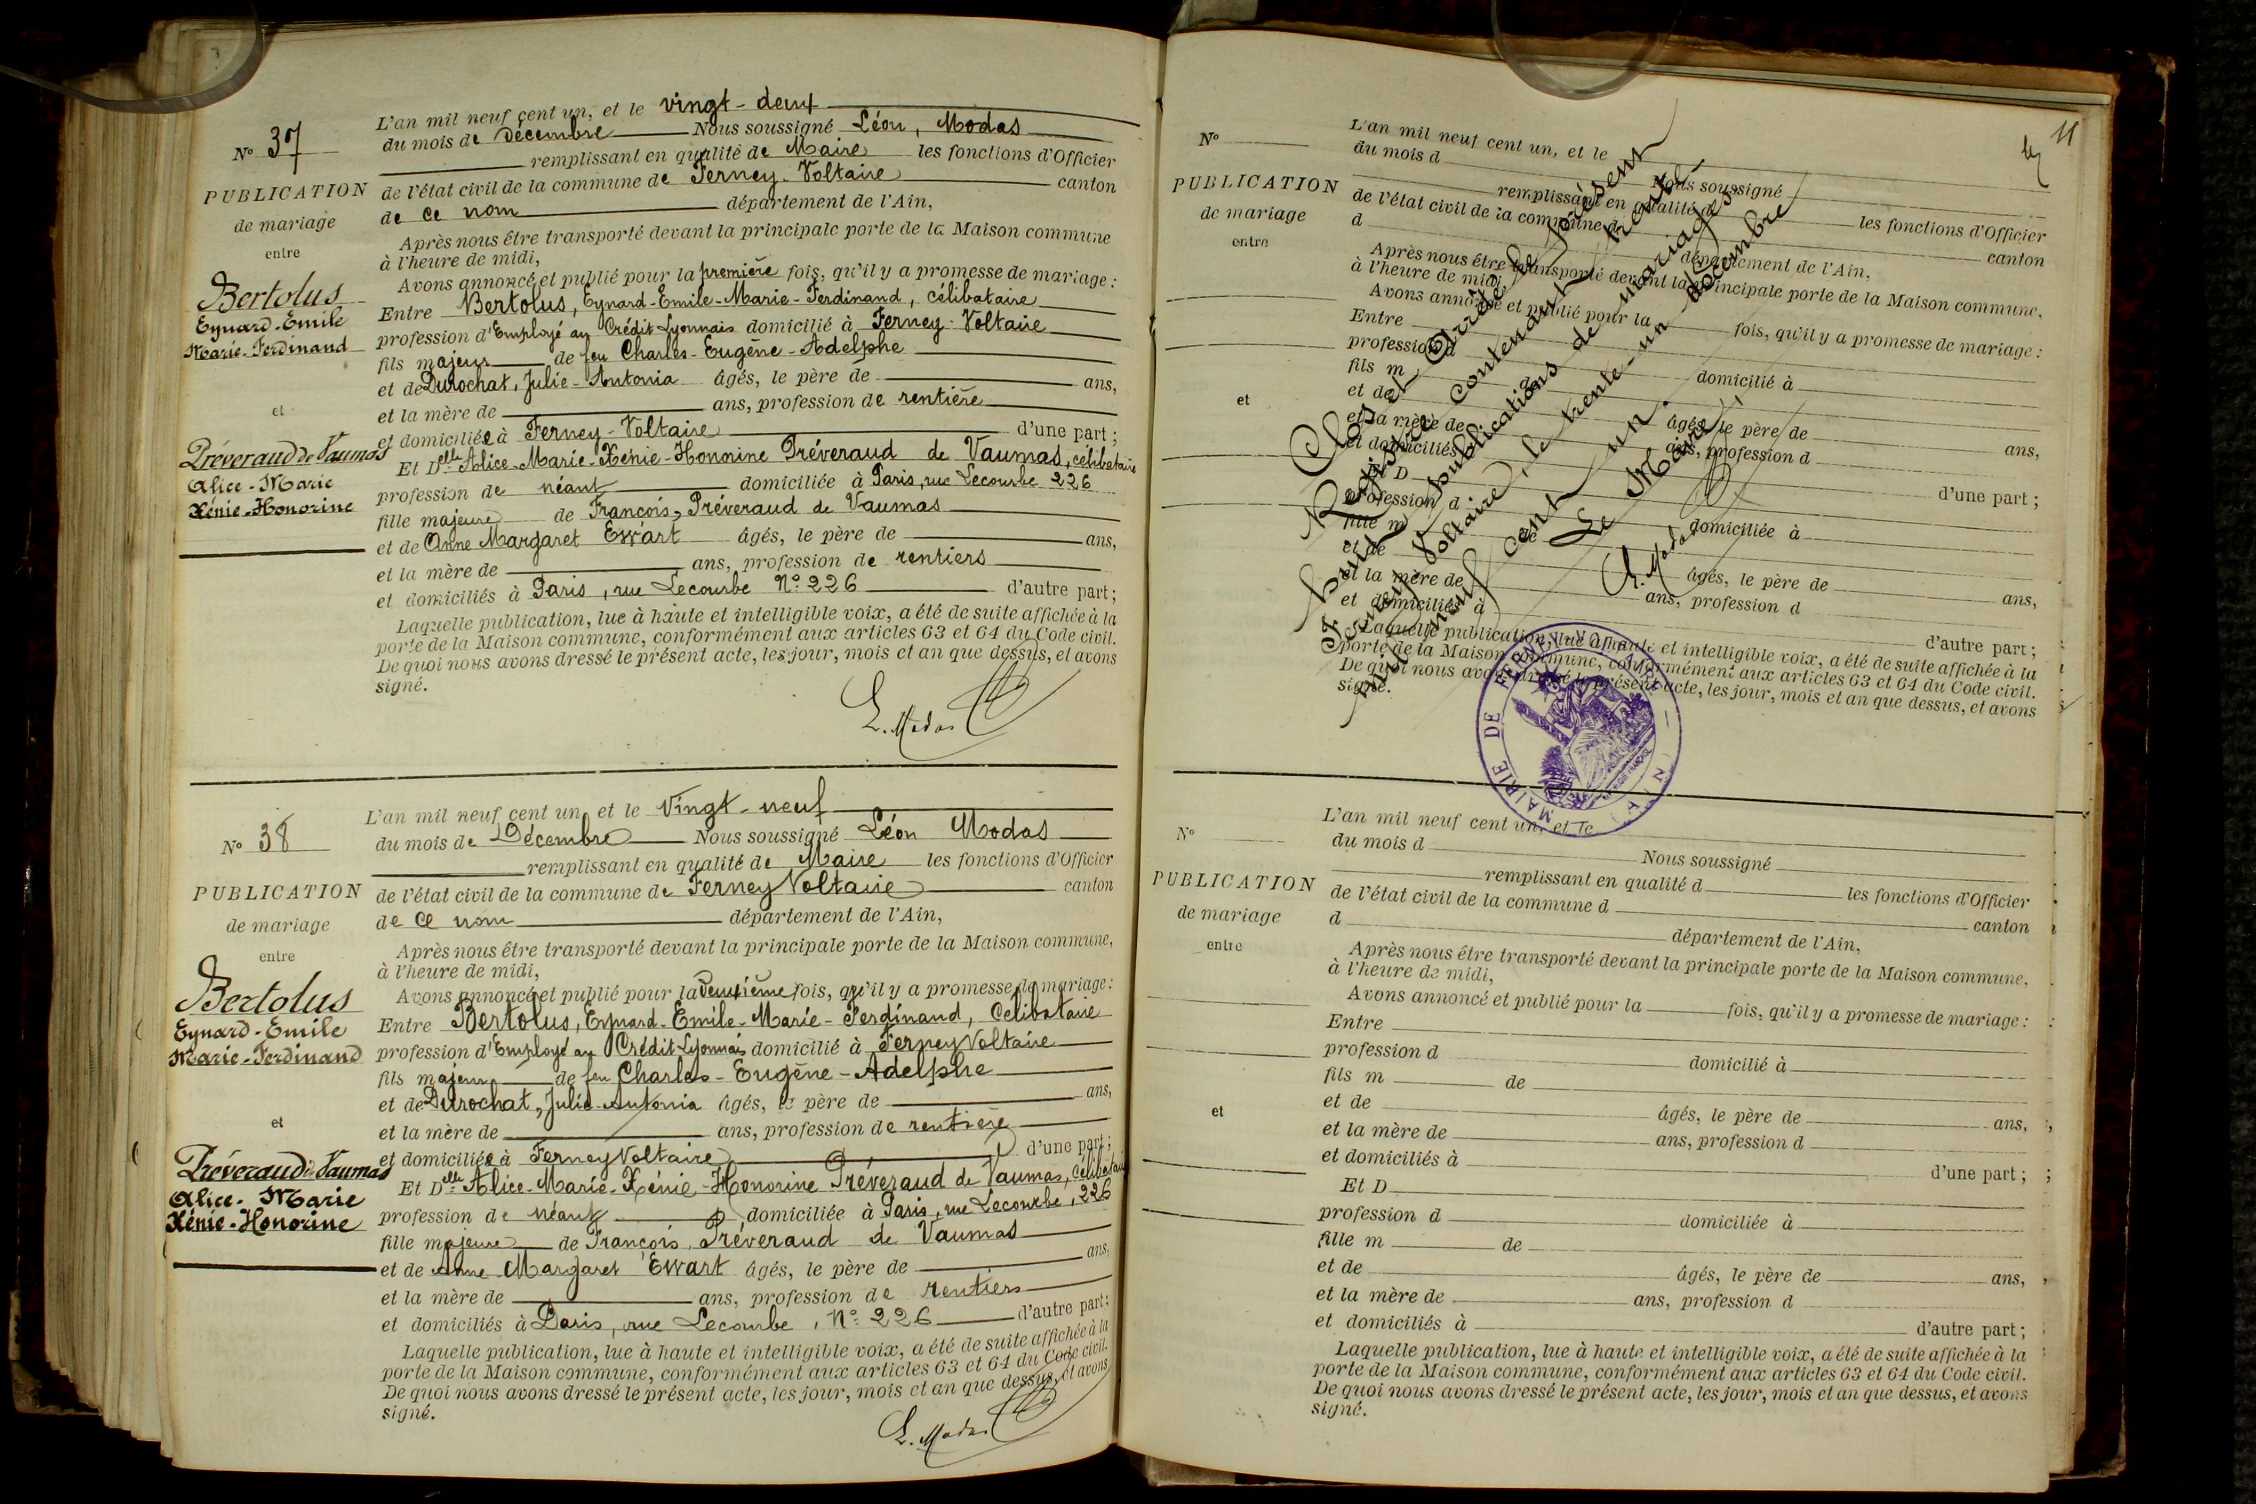 L'an mil neuf cent un, et le vingt-deux
du mois de Décembre Nous soussigné Léon, Modas
remplissant en qualité de Maire les fonctions d'Officier
de l'état civil de la commune de Ferney-Voltaire canton
de ce nom département de l'Ain,
Après nous être transporté devant la principale porte de la Maison commune
à l'heure de midi,
Avons annoncé et publié pour la première fois, qu'il y a promesse de mariage :
Entre Bertolus, Eynard-Emile-Marie-Ferdinand, célibataire
profession d'Employé au Crédit Lyonnais domicilié à Ferney-Voltaire
fils majeur de feu Charles-Eugène-Adelphe
et de Durochat, Julie-Antonia âgés, le père de ans,
et la mère de ans, profession de rentière
et domiciliée à Ferney-Voltaire d'une part ;
Et Delle Alice-Marie-Xénie-Honorine Préveraud de Vaumas, célibataire
profession de néant domiciliée à Paris, rue Lecourbe 226
fille majeure de François, Préveraud de Vaumas
et de Anne Margaret Ewart âgés, le père de ans,
et la mère de ans, profession de rentiers
et domiciliés à Paris, rue Lecourbe No 226 d'autre part ;
Laquelle publication, lue à haute et intelligible voix, a été de suite affichée à la
porte de la Maison commune, conformément aux articles 63 et 64 du Code civil.
De quoi nous avons dressé le présent acte, les jour, mois et an que dessus, et avons
signé.
L. Modas
No 37
PUBLICATION
de mariage
entre
Bertolus
Eynard-Emile
Marie-Ferdinand
et
Préveraud de Vaumas
Alice-Marie
Xénie-Honorine
L'an mil neuf cent un, et le Vingt-neuf
du mois de Décembre Nous soussigné Léon Modas
remplissant en qualité de Maire les fonctions d'Officier
de l'état civil de la commune de Ferney Voltaire canton
de ce nom département de l'Ain,
Après nous être transporté devant la principale porte de la Maison commune,
à l'heure de midi,
Avons annoncé et publié pour la Deuxième fois, qu'il y a promesse de mariage :
Entre Bertolus, Eynard-Emile-Marie-Ferdinand, Célibataire
profession d'Employé au Crédit Lyonnais domicilié à Ferney Voltaire
fils majeur de feu Charles-Eugène-Adelphe
et de Durochat, Julie-Antonia âgés, le père de ans,
et la mère de ans, profession de rentière
et domiciliée à Ferney Voltaire d'une part ;
Et Delle Alice-Marie-Xénie-Honorine Préveraud de Vaumas, Célibataire
profession de néant domiciliée à Paris, rue Lecourbe, 226
fille majeure de François, Préveraud de Vaumas
et de Anne Margaret Ewart âgés, le père de ans,
et la mère de ans, profession de rentiers
et domiciliés à Paris, rue Lecourbe, No 226 d'autre part ;
Laquelle publication, lue à haute et intelligible voix, a été de suite affichée à la
porte de la Maison commune, conformément aux articles 63 et 64 du Code civil.
De quoi nous avons dressé le présent acte, les jour, mois et an que dessus, et avons
signé.
L. Modas
No 38
PUBLICATION
de mariage
entre
Bertolus
Eynard-Emile
Marie-Ferdinand
et
Préveraud de Vaumas
Alice-Marie
Xénie-Honorine
11
No
PUBLICATION
de mariage
entre
et
L'an mil neuf cent un, et le
du mois d Nous soussigné
remplissant en qualité d les fonctions d'Officier
de l'état civil de la commune d canton
d département de l'Ain,
Après nous être transporté devant la principale porte de la Maison commune,
à l'heure de midi,
Avons annoncé et publié pour la fois, qu'il y a promesse de mariage :
Entre
profession d domicilié à
fils m de
et de âgés, le père de ans,
et la mère de ans, profession d
et domiciliés à d'une part ;
Et D
profession d domiciliée à
fille m de
et de âgés, le père de ans,
et la mère de ans, profession d
et domiciliés à d'autre part ;
Laquelle publication, lue à haute et intelligible voix, a été de suite affichée à la
porte de la Maison commune, conformément aux articles 63 et 64 du Code civil.
De quoi nous avons dressé le présent acte, les jour, mois et an que dessus, et avons
signé.
Clos et Arrêté le présent
Registre contenant trente-
et huit publications de mariages
à Ferney-Voltaire, le trente-un décembre
mil neuf cent un.
Le Maire,
L. Modas
MAIRIE DE FERNEY-VOLTAIRE (AIN)
No
PUBLICATION
de mariage
entre
et
L'an mil neuf cent un, et le
du mois d Nous soussigné
remplissant en qualité d les fonctions d'Officier
de l'état civil de la commune d canton
d département de l'Ain,
Après nous être transporté devant la principale porte de la Maison commune,
à l'heure de midi,
Avons annoncé et publié pour la fois, qu'il y a promesse de mariage :
Entre
profession d domicilié à
fils m de
et de âgés, le père de ans,
et la mère de ans, profession d
et domiciliés à d'une part ;
Et D
profession d domiciliée à
fille m de
et de âgés, le père de ans,
et la mère de ans, profession d
et domiciliés à d'autre part ;
Laquelle publication, lue à haute et intelligible voix, a été de suite affichée à la
porte de la Maison commune, conformément aux articles 63 et 64 du Code civil.
De quoi nous avons dressé le présent acte, les jour, mois et an que dessus, et avons
signé.